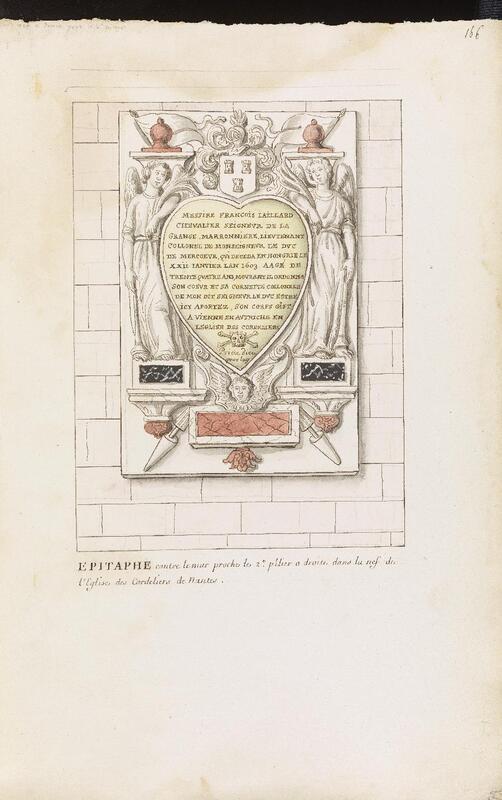 166
MESSIRE FRANCOIS IAILLARD
CHEVALIER SEIGNEVR DE LA
GRANGE, MARRONNIERE, LIEVTENANT
COLLONEL DE MONSEIGNEVR LE DVC
DE MERCOEVR, QVI DECEDA EN HONGRIE LE
XXII IANVIER LAN 1603 AAGE DE
TRENTE QVATRE ANS, MOVRANT IL ORDONNA
SON COEVR ET SA CORNETTE COLLONELLE
DE MON DIT SEIGNEVR LE DVC ESTRE
ICY APORTEZ, SON CORPS GIST
A VIENNE EN AVTRICHE EN
LEGLISE DES CORDELIERS
Priez Dieu
pour luy
EPITAPHE contre le mur proche le 2e. pillier a droite dans la nef de
l'Eglise des Cordeliers de Nantes.